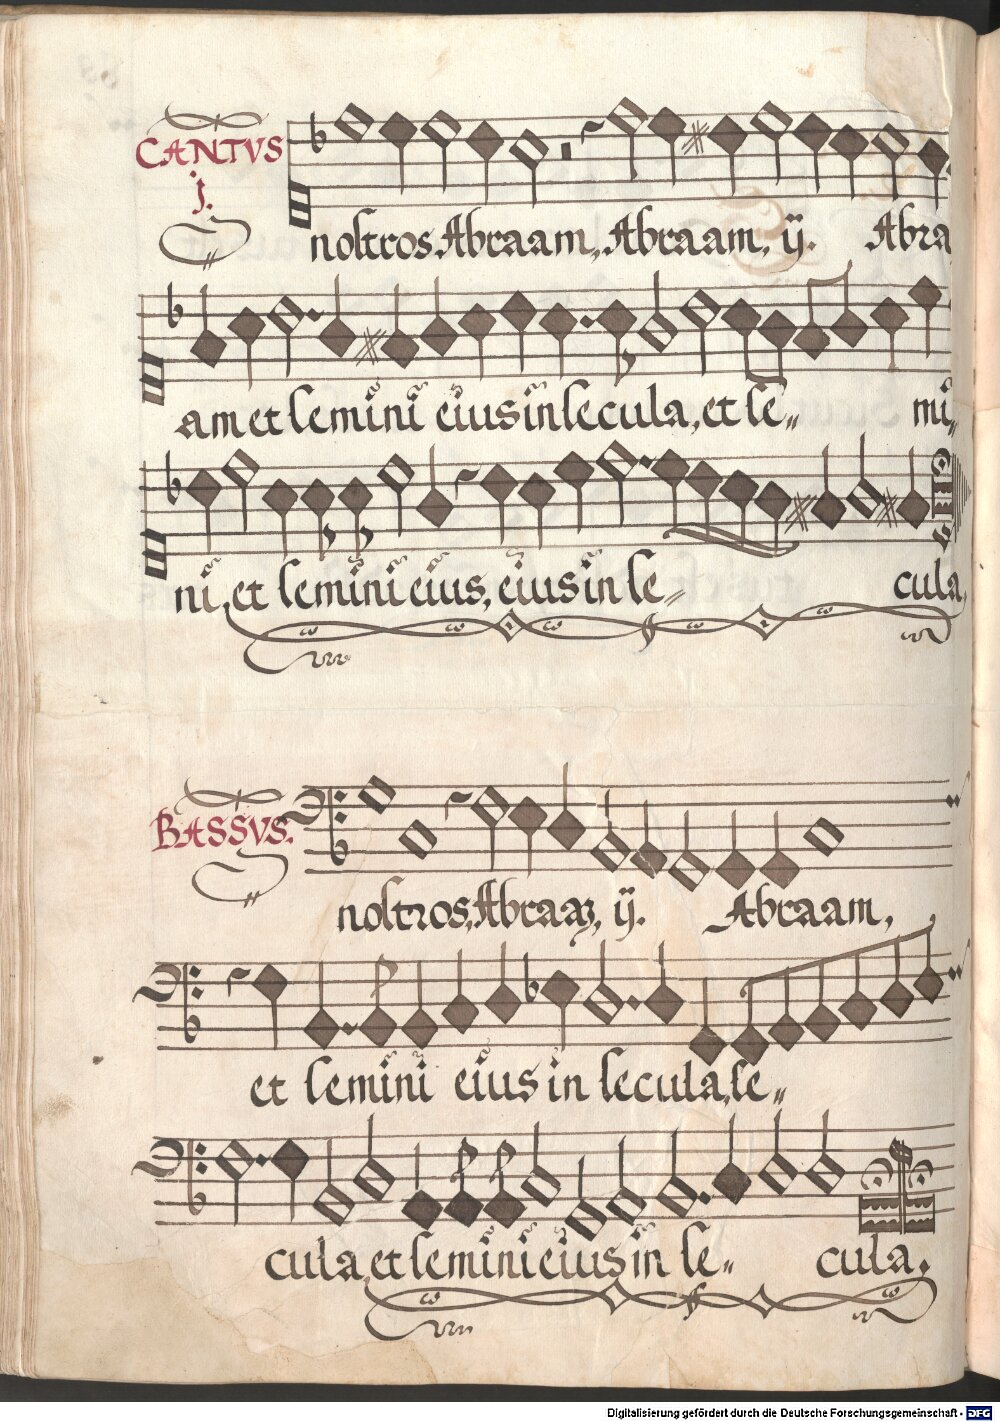 CANTVS
j.
nostros Abraam, Abraam, ij. Abra
am et semini eius in secula, et se„ mi„
ni, et semini eius, eius in se„ cula,
BASSVS.
nostros, Abraaʒ, ij. Abraam,
et semini eius in secula, se„
cula, et semini eius in se„ cula,
Digitalisierung gefördert durch die Deutsche Forschungsgemeinschaft - DFG